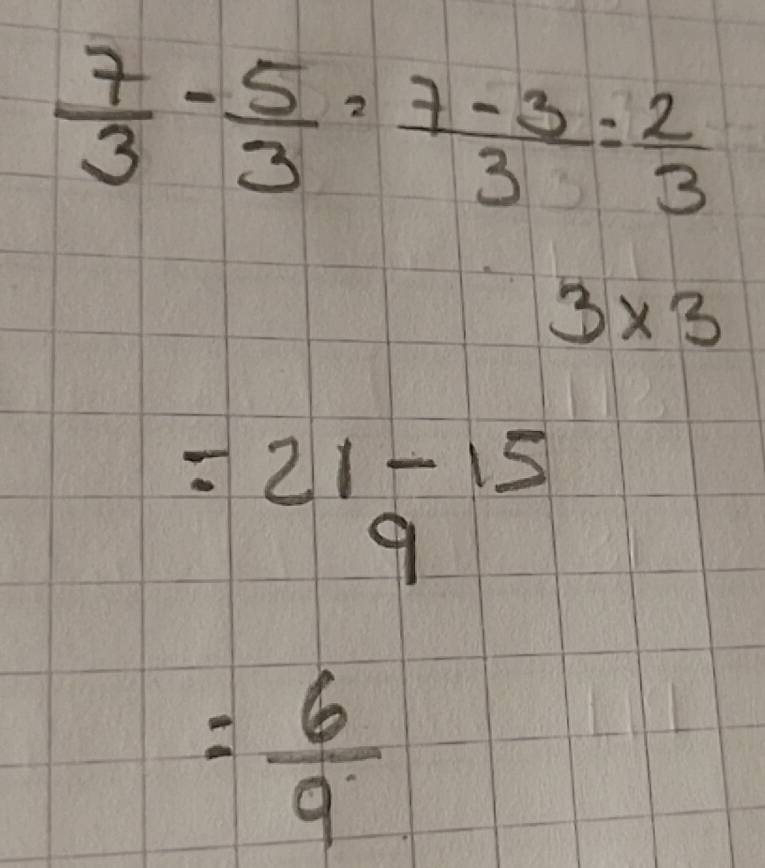 7/3 - 5/3 = 7 - 3/3 = 2/3
3 x 3
= 21 - 15
9
= 6/9